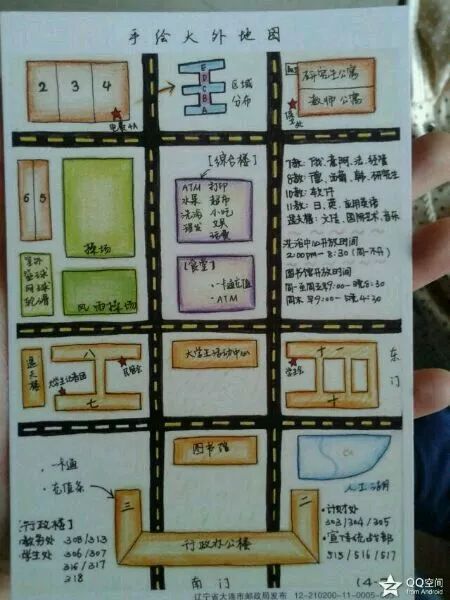 手绘大外地图
2 3 4
电教4A
E
D
C
B
A
区域
分布
研究生公寓
教师公寓
6 5
操场
风雨操场
室外
篮球
网球
轮滑
[综合楼]
ATM 打印
水果 超市
洗海 小吃
理发 文具
话费
[食堂]
·一卡通充值
·ATM
7教: 俄、意阿、法、经管
8教: 德、西葡、韩、研究生
10教: 软件
11教: 日、英、应用英语
逸夫楼: 文法、国际艺术、音乐
洗浴中心开放时间
2:00pm-8:30 (周一不开)
图书馆开放时间
周一至周五早9:00-晚8:30
周末 早9:00-晚4:30
逸夫楼
八
七
大学生记者团
大学生活动中心
十一
十
东门
图书馆
人工湖
·一卡通
·充值条
三
二
行政办公楼
[行政楼]
·教务处 308/313
·学生处 306/307
316/317
318
·计财处
303/304/305
·宣传统战部
515/516/517
南门
(4-
辽宁省大连市邮政局发布 12-210200-11-0005-
QQ空间
from Android